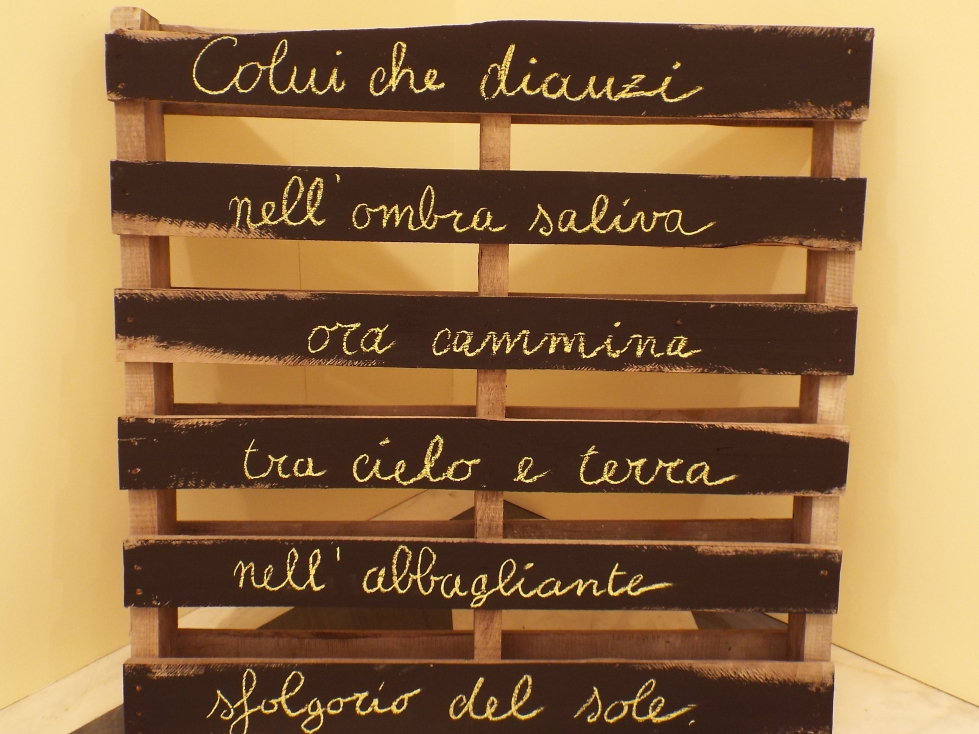 Colui che dianzi
nell'ombra saliva
ora cammina
tra cielo e terra
nell'abbagliante
sfolgorio del sole.